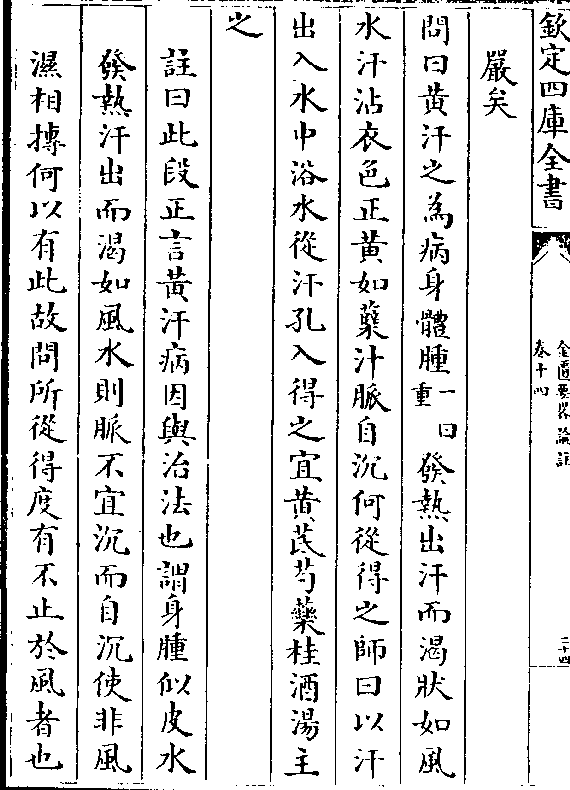 欽定四庫全書
金匱要畧論註
卷十四
二十四
嚴矣
問曰黃汗之為病身體腫一曰重發熱出汗而渴狀如風
水汗沾衣色正黃如蘗汁脈自沉何從得之師曰以汗
出入水中浴水從汗孔入得之宜黃芪芍藥桂酒湯主
之
註曰此段正言黃汗病因與治法也謂身腫似皮水
發熱汗出而渴如風水則脈不宜沉而自沉使非風
濕相摶何以有此故問所從得度有不止於風者也